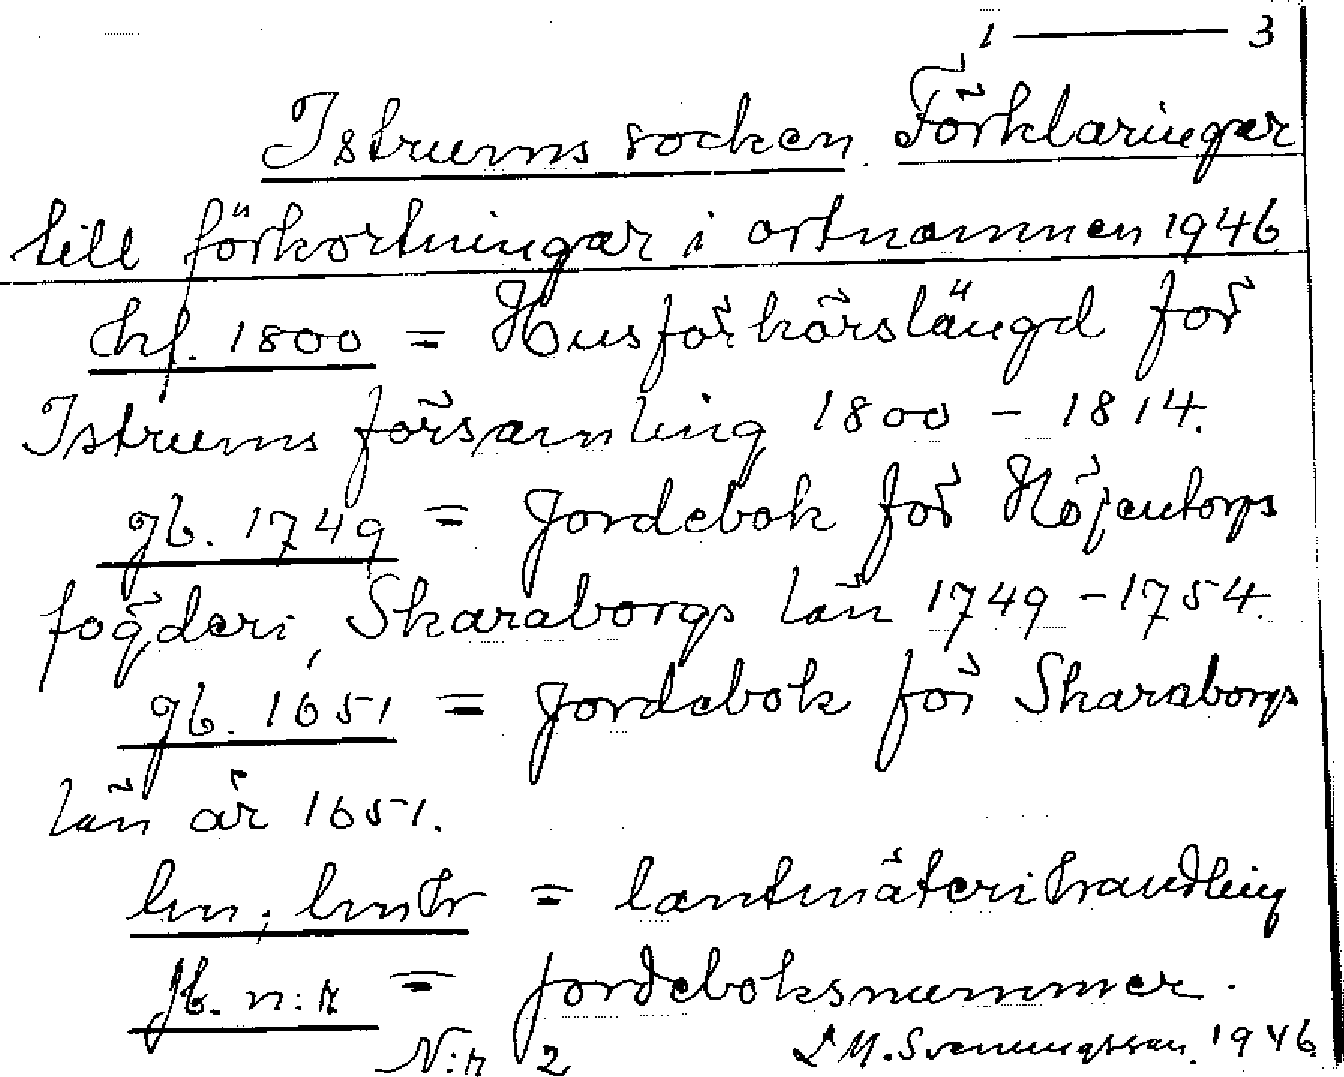 1 — 3
Istrums socken. Förklaringar
till förkortningar i ortnamnen 1946
hf. 1800 = Husförhörslängd för
Istrums församling 1800 - 1814.
jb. 1749 = Jordebok för Höjentorps
fögderi, Skaraborgs län 1749 - 1754.
jb. 1651 = Jordebok för Skaraborgs
län år 1651.
lm; lmhr = lantmäterihandling
jb. n:r = jordeboksnummer.
N:r 2 L M. Svenungsson. 1946